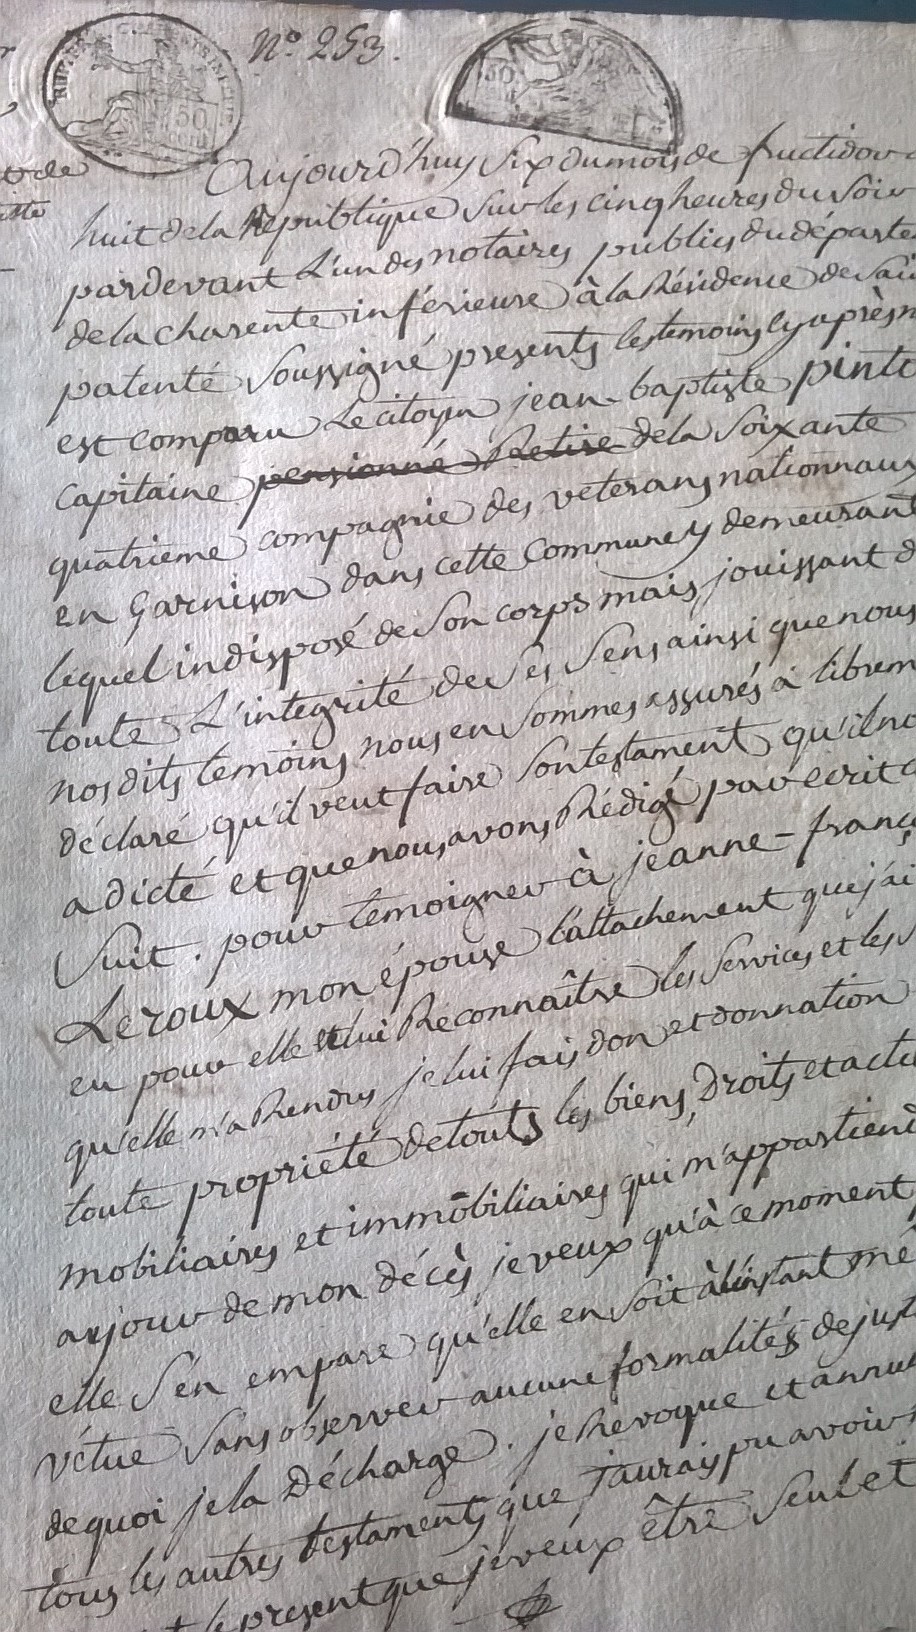 N.o 253.
50
50
Aujourd'huy Six du mois de fructidor
huit de la Republique Sur les cinq heures du Soir
pardevant L'un des notaires publics du départe
de la charente inférieure à la Résidence de Sai
patenté Soussigné presents les temoins cy après n
est comparu Le citoyen jean-baptiste pinte
Capitaine pensionné Retire de la Soixante
quatrieme compagnie des veterans nationnaux
en Garnison dans cette Commune y demeurant
lequel indisposé de Son corps mais jouissant d
toute L'integrité de Ses Sens ainsi que nous
nosdits temoins nous en Sommes assurés a librem
déclaré qu'il veut faire Son testament qu'il no
a dicté et que nous avons Rédigé par ecrit c
Suit. pour temoigner à jeanne-franç
Leroux mon épouse l'attachement que j'ai
eu pour elle et lui Reconnaître les Services et les S
qu'elle m'a Rendus je lui fais don et donnation
toute propriété de touts les biens, Droits et actio
mobiliaires et immobiliaires qui m'appartiend
au jour de mon décès je veux qu'à ce moment
elle S'en empare qu'elle en Soit à l'instant mê
vétue Sans observer aucune formalités de just
de quoi je la Décharge. je Revoque et annul
tous les autres testaments que j'aurais pu avoir
le present que je veux être Seul et